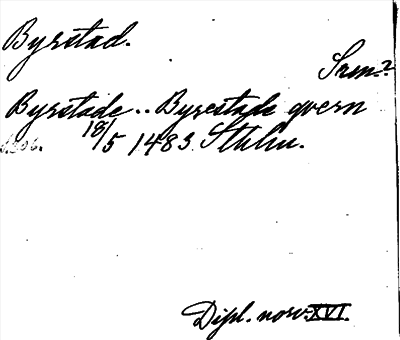 Byrstad.
Srm.?
Byrstade .. Byrestade qvern
18/5 1483. Sthlm.
Dipl. norv. XVI.